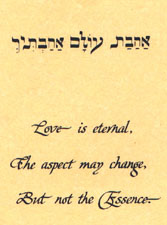 אַהֲבַת עוֹלָם אֲהַבְתִּיךְ
Love is eternal,
The aspect may change,
But not the Essence.